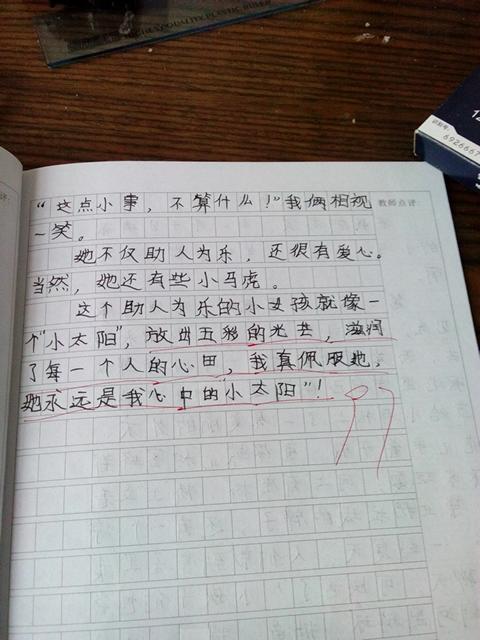 “这点小事，不算什么！”我俩相视
一笑。
她不仅助人为乐，还很有爱心。
当然，她还有些小马虎。
这个助人为乐的小女孩就像一
个“小太阳”，放出五彩的光芒，滋润
了每一个人的心田，我真佩服她，
她永远是我心中的小太阳”！
97
教师点评：
6926667